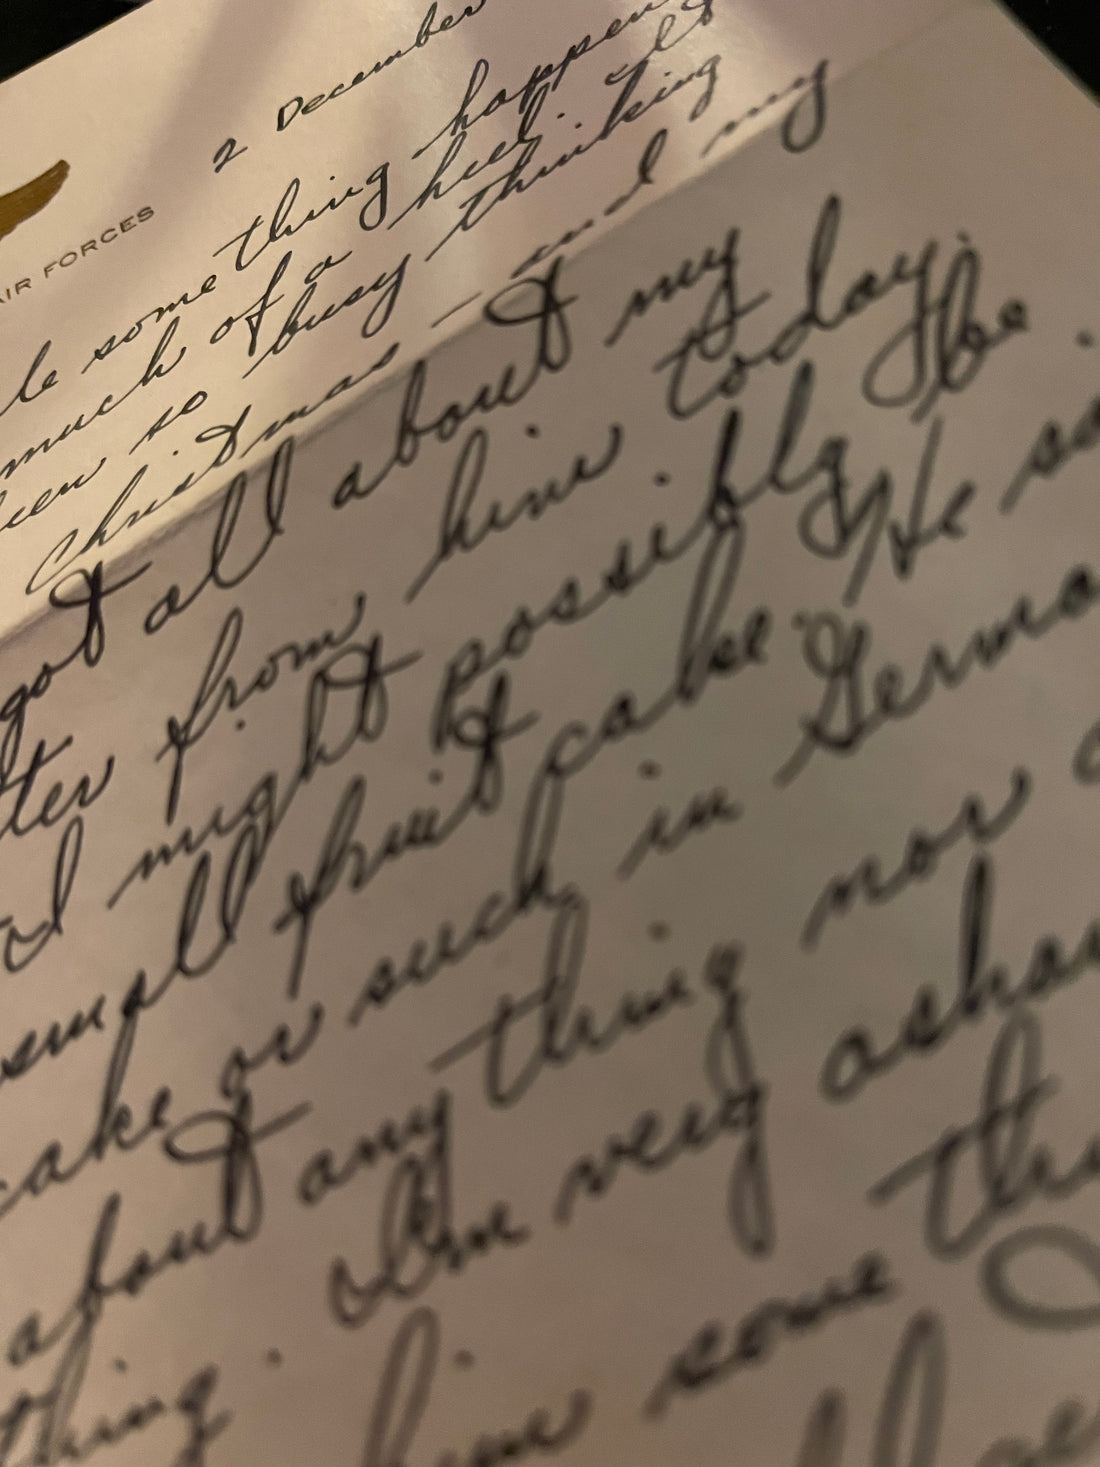 2 December
AIR FORCES
le some thing happen
much of a heel.
been so busy thinking
Christmas — and my
got all about my
ter from him today.
d might possibly be
small fruit cake. He sa
cake or such in Germa
about any thing nor
thing. I'm very asha
him some thi